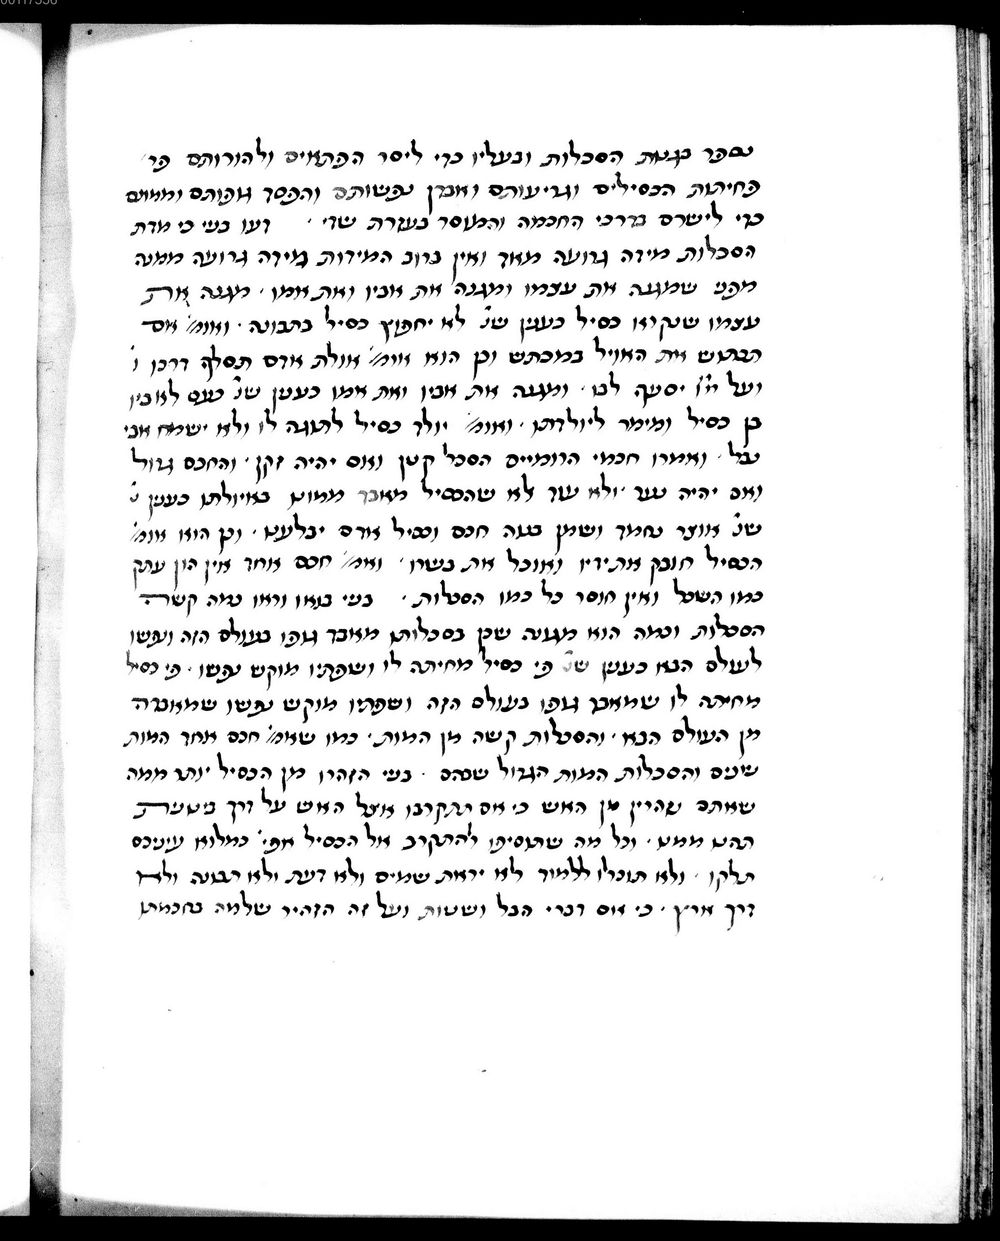 נספר בגנות הסכלות ובעליו כדי ליסר הפתאים ולהורותם פר׳
פחיתות הכסילים וגריעותם ואבדן נפשותם והפסד גופותם וממונם
כדי לישרם בדרכי החכמה והמוסר בעזרת שדי ׳ דעו בני כי מדת
הסכלות מידה גרועה מאד ואין ברוב המידות מידה גרועה ממנה
מפני שמגנה את עצמו ומגנה את אביו ואת אמו ׳ מגנה את
עצמו שנקרא כסיל כענין שנ׳ לא יחפוץ כסיל בתבונה ׳ ואומ׳ אם
תכתוש את האויל במכתש וכן הוא אומ׳ אולת אדם תסלף דרכו ו׳
ועל ייי יזעף לבו ׳ ומגנה את אביו ואת אמו כענין שנ׳ כעס לאביו
בן כסיל וממר ליולדתו ׳ ואומ׳ יולד כסיל לתוגה לו ולא ישמח אבי
נבל ׳ ואמרו חכמי הרומיים הסכל קטן ואם יהיה זקן ׳ והחכם גדול
ואם יהיה נער ׳ ולא עוד אלא שהכסיל מאבד ממונו באיולתו כענין ש׳
שנ׳ אוצר נחמד ושמן בנוה חכם וכסיל אדם יבלענו ׳ וכן הוא אומ׳
הכסיל חובק את ידיו ואוכל את בשרו ׳ ואמ׳ חכם אחד אין הון עתק
כמו השכל ואין חוסר כל כמו הסכלות ׳ בני בואו וראו כמה קשה
הסכלות וכמה הוא מגונה שכן בסכלותו מאבד גופו בעולם הזה ונפשו
לעולם הבא כענין שנ׳ פי כסיל מחיתה לו ושפתיו מוקש נפשו ׳ פי כסיל
מחיתה לו שמאבד גופו בעולם הזה ושפתיו מוקש נפשו שמאבדה
מן העולם הבא ׳ והסכלות קשה מן המות ׳ כמו שאמ׳ חכם אחד המות
שינים והסכלות המות הגדול שבהם ׳ בני הזהרו מן הכסיל יותר ממה
שאתם נזהרין מן האש כי אם תתקרבו אצל האש על דרך
תהנו ממנו ׳ וכל מה שתוסיפו להתקרב אל הכסיל אפי׳ כמלוא עיניכם
תלקו ׳ ולא תוכלו ללמוד לא יראת שמים ולא דעת ולא תבונה ולא
דרך ארץ ׳ כי אם דברי הבל ושטות ועל זה הזהיר שלמה בחכמתו